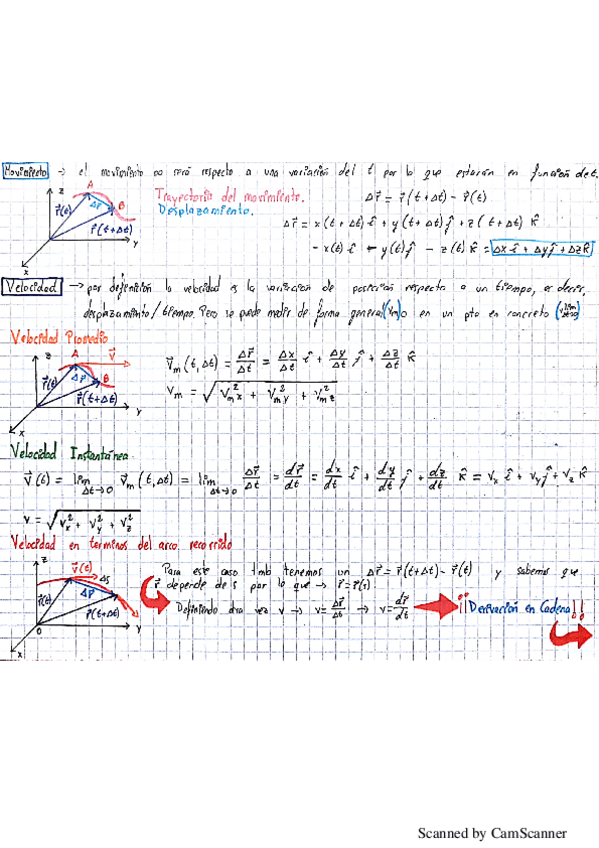 Movimiento → el movimiento no será respecto a una variación del t por lo que estarán en función de t.
z A B Δr⃗ r⃗(t) r⃗(t+Δt) y x
Trayectoria del movimiento.
Desplazamiento.
Δr⃗ = r⃗(t+Δt) - r⃗(t)
Δr⃗ = x(t+Δt) î + y(t+Δt) ĵ + z(t+Δt) k̂
- x(t) î - y(t) ĵ - z(t) k̂ = Δx î + Δy ĵ + Δz k̂
Velocidad → por definición la velocidad es la variación de posición respecto a un tiempo, es decir,
desplazamiento/tiempo. Pero se puede medir de forma general (Vm) o en un pto en concreto (lim Δt→0)
Velocidad Promedio
z A V⃗ B Δr⃗ r⃗(t) r⃗(t+Δt) y x
V⃗m (t,Δt) = Δr⃗/Δt = Δx/Δt î + Δy/Δt ĵ + Δz/Δt k̂
Vm = √(V²mx + V²my + V²mz)
Velocidad Instantánea
V⃗(t) = lim Δt→0 V⃗m (t,Δt) = lim Δt→0 Δr⃗/Δt = dr⃗/dt = dx/dt î + dy/dt ĵ + dz/dt k̂ = Vx î + Vy ĵ + Vz k̂
v = √(Vx² + Vy² + Vz²)
Velocidad en términos del arco recorrido
z V⃗(t) Δs Δr⃗ r⃗(t) r⃗(t+Δt) 0 y x
Para este caso tmb tenemos un Δr⃗ = r⃗(t+Δt) - r⃗(t) y sabemos que
r⃗ depende de s por lo que → r⃗ = r⃗(s)
Definiendo otra vez v → v = Δr⃗/Δt → v = dr⃗/dt ¡¡Derivación en Cadena!!
Scanned by CamScanner